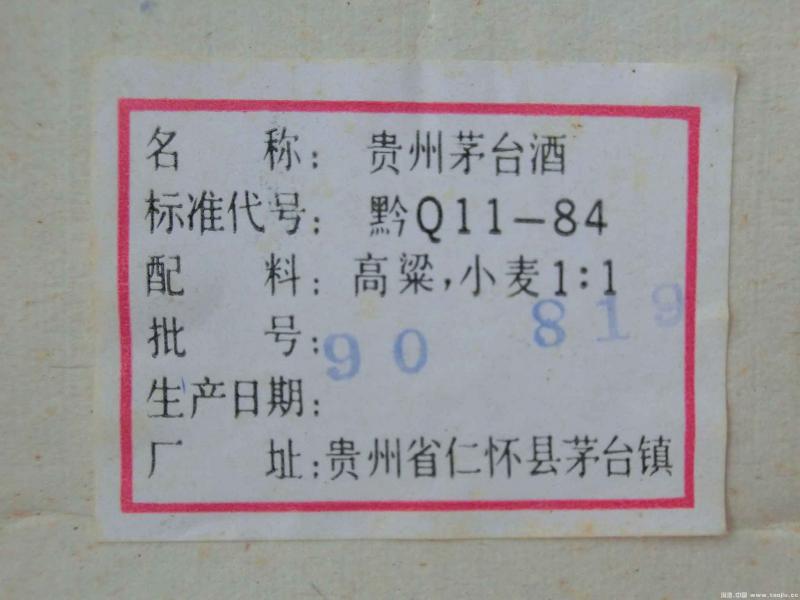 名 称：贵州茅台酒
标准代号：黔Q11－84
配 料：高粱，小麦1：1
批 号：90 819
生产日期：
厂 址：贵州省仁怀县茅台镇